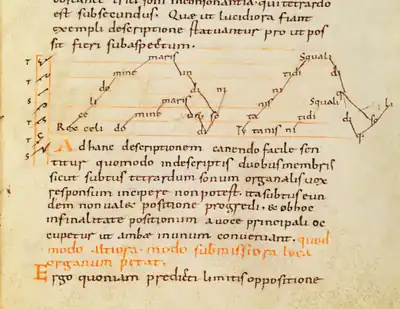 est subsecundus. Quae ut lucidiora fiant
exempli descriptione statuantur pro ut pos
sit fieri subaspectum.
maris Squali
mine un tidi di
do di ni so li
li mine maris so nis tidi Squali di
ce
Rex celi do di Ty tanis ni
Ad hanc descriptionem canendo facile sen
titur quomodo indescriptis duobus membris
sicut subtus tetrardum sonum organalis vox
responsum incipere non potest. ita subtus eun
dem non valeat positione progredi. & ob hoc
in finalitate positionum a voce principali oc
cupetur ut ambae in unum conveniant. quod
modo altiora. modo submissiora loca
organum petat.
Ergo quoniam praedicti limitis oppositione